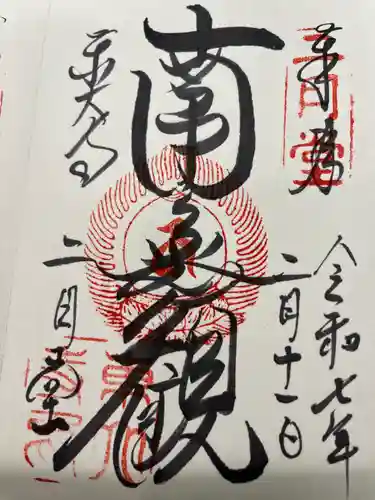 奉拝
令和七年
二月十一日
南無観
東大寺
二月堂